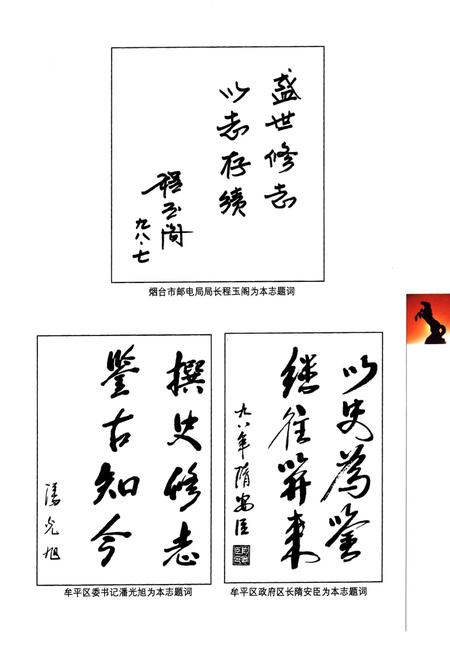 盛世修志
以志存续
程玉阁
九八·七
烟台市邮电局局长程玉阁为本志题词
撰史修志
鉴古知今
潘光旭
牟平区委书记潘光旭为本志题词
以史为鉴
继往开来
九八年 隋安臣
牟平区政府区长隋安臣为本志题词